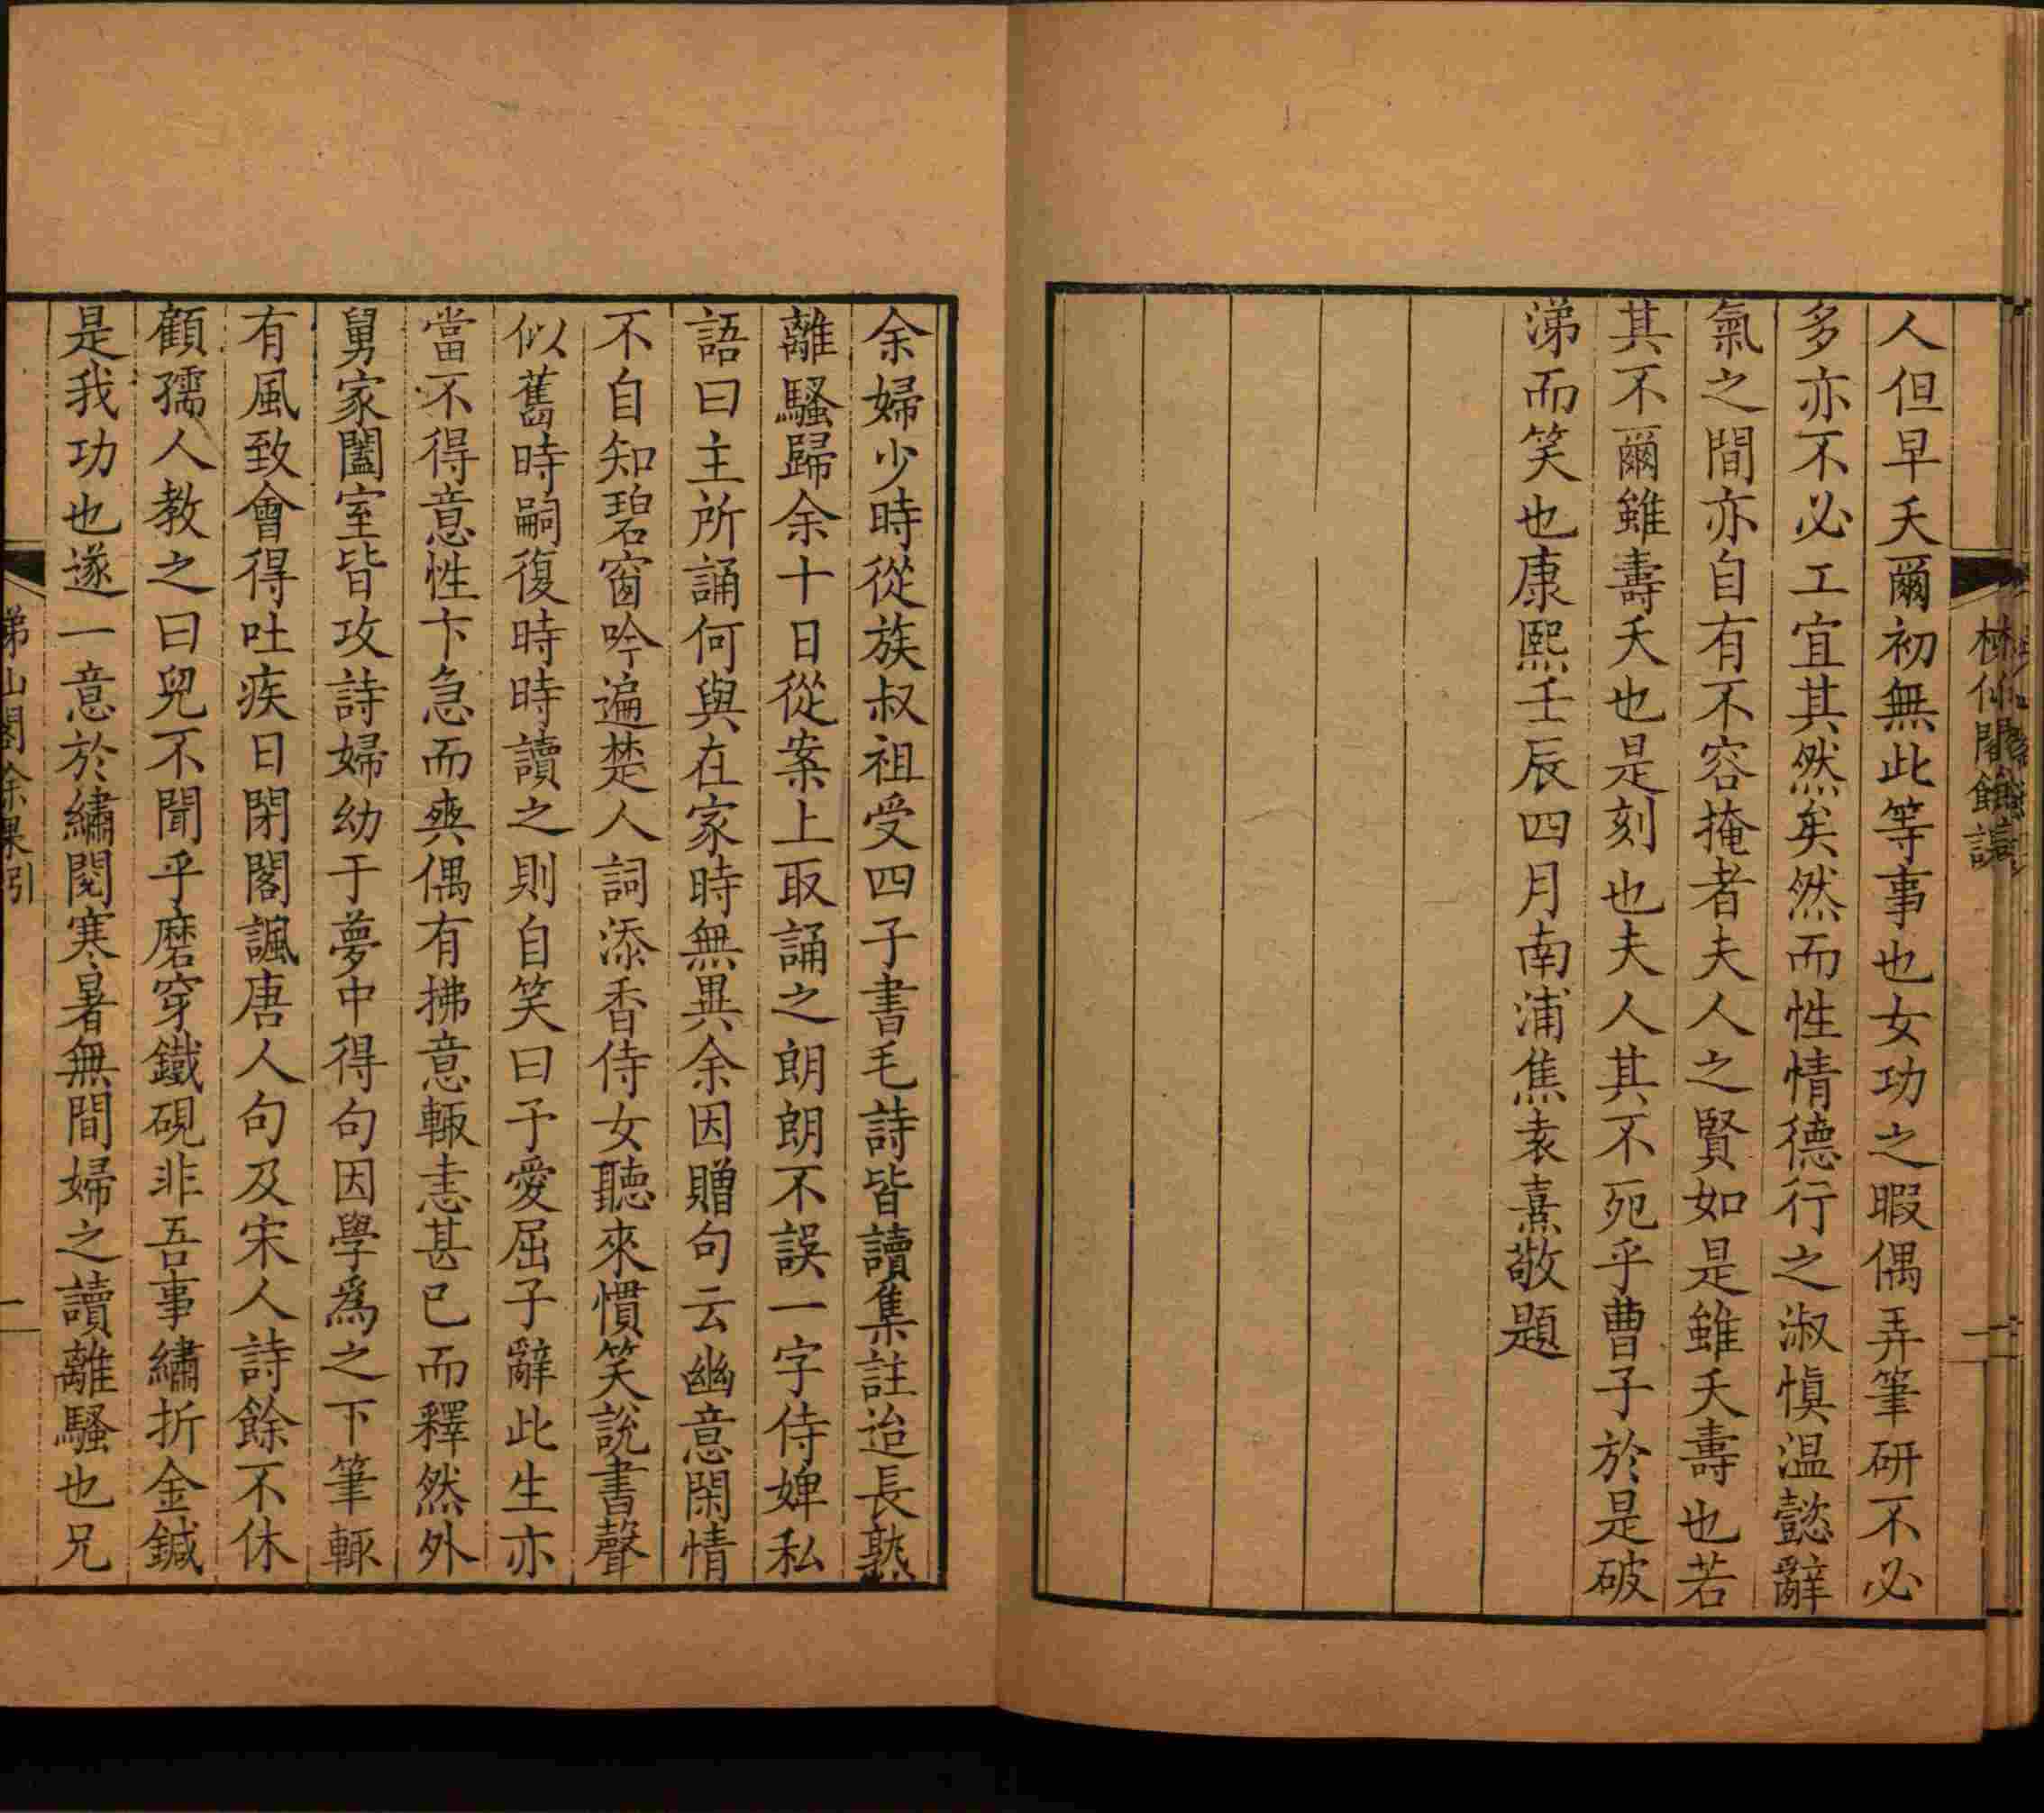 人但早夭爾初無此等事也女功之暇偶弄筆研不必
多亦不必工宜其然矣然而性情德行之淑慎温懿辭
氣之間亦自有不容掩者夫人之賢如是雖夭壽也若
其不爾雖壽夭也是刻也夫人其不死乎曹子於是破
涕而笑也康熙壬辰四月南浦焦袁熹敬題
余婦少時從族叔祖受四子書毛詩皆讀集註迨長熟
離騷歸余十日從案上取誦之朗朗不誤一字侍婢私
語曰主所誦何與在家時無異余因贈句云幽意閑情
不自知碧窗吟遍楚人詞添香侍女聽來慣笑說書聲
似舊時嗣復時時讀之則自笑曰予愛屈子辭此生亦
當不得意性卞急而爽偶有拂意輙恚甚已而釋然外
舅家闔室皆攻詩婦幼于夢中得句因學爲之下筆輙
有風致會得吐疾日閉閣諷唐人句及宋人詩餘不休
顧孺人教之曰兒不聞乎磨穿鐵硯非吾事繡折金鍼
是我功也遂一意於繡閱寒暑無間婦之讀離騷也兄